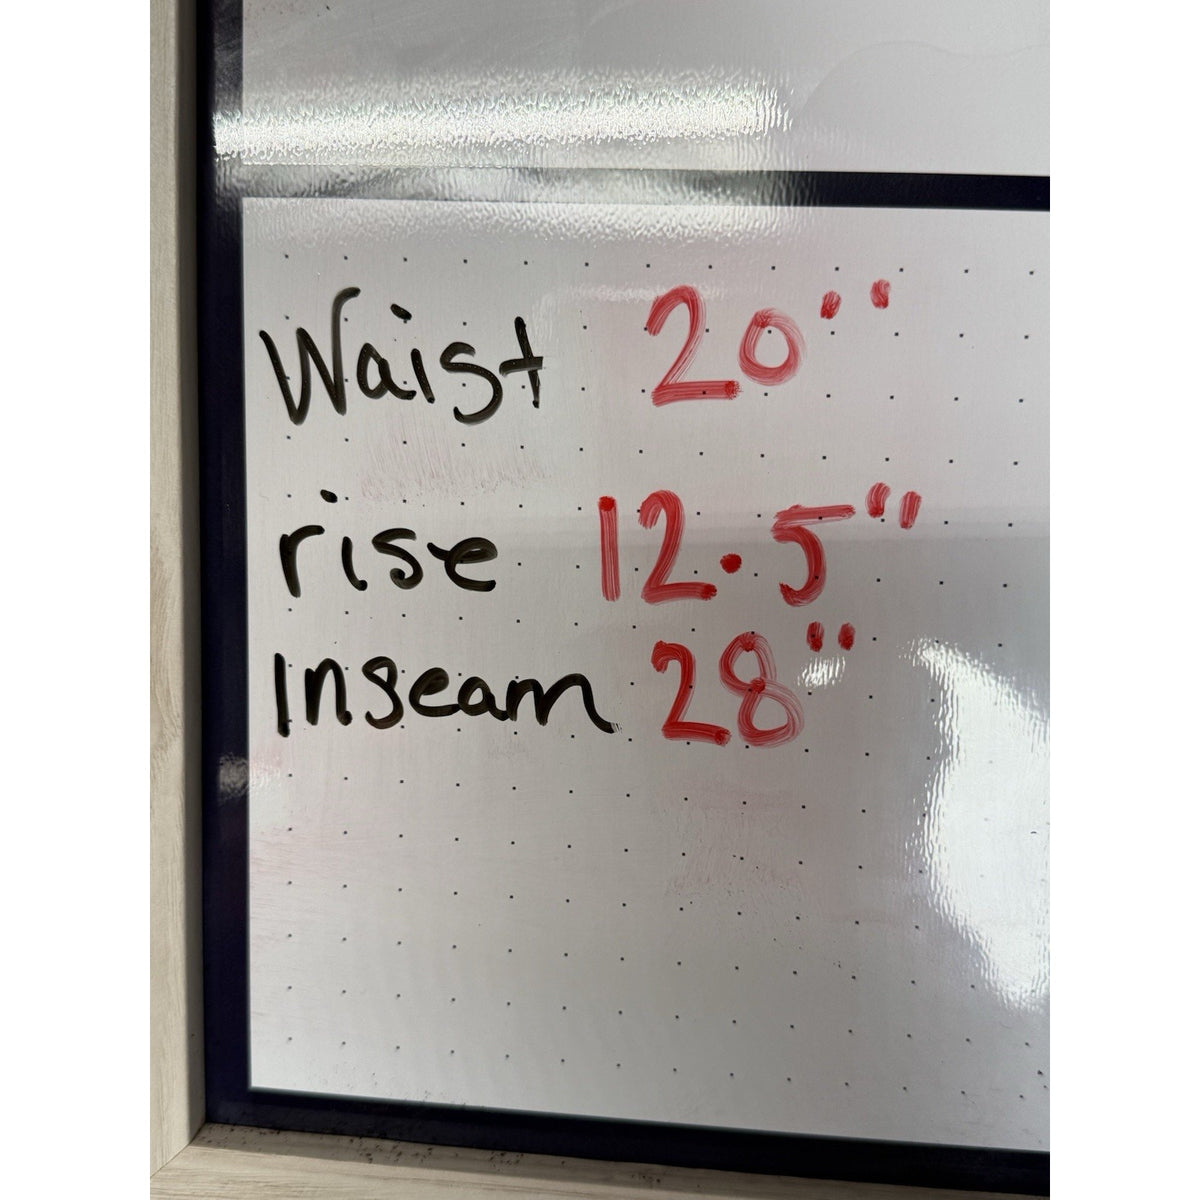 Waist 20''
rise 12.5"
Inseam 28"